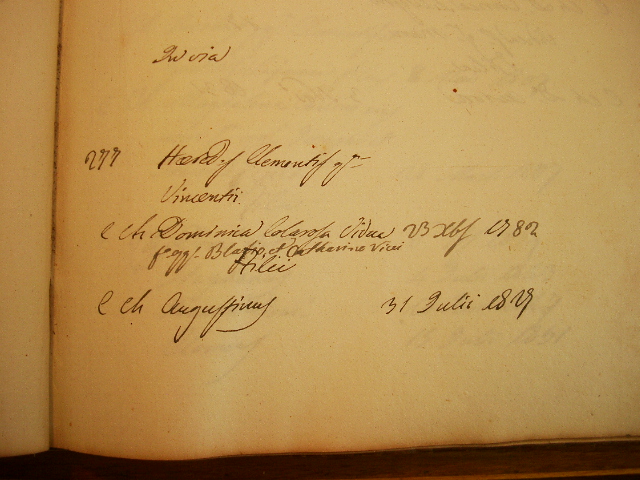 277 Hæredes Clementis qm
Vincentii
e ch Dominica Colarosa Vidua 23 Xbs 1782
Blasii, et Catharine
Filii
e ch Augustinus 31 Julii 1827